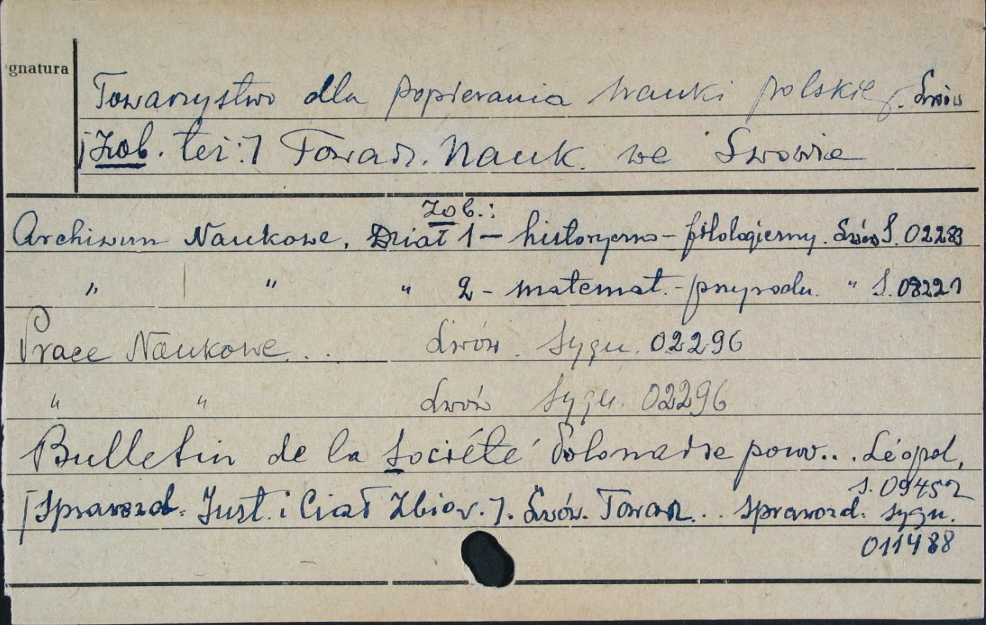 gnatura
Towarzystwo dla popierania nauki polskiej. Lwów
[Zob. też:] Towarz. Nauk. we Lwowie
Zob.:
Archiwum Naukowe. Dział 1 - historyczno-filologiczny. Lwów S. 02283
" " " 2 - matemat.-przyrodn. " S.
Prace Naukowe... Lwów. Sygn. 02296
" " Lwów Sygn. 02296
Bulletin de la Société Polonaise pour... Léopol,
S. 09452
[Sprawozd. Inst. i Ciał Zbior.]. Lwów. Towarz... Sprawozd. sygn.
011488